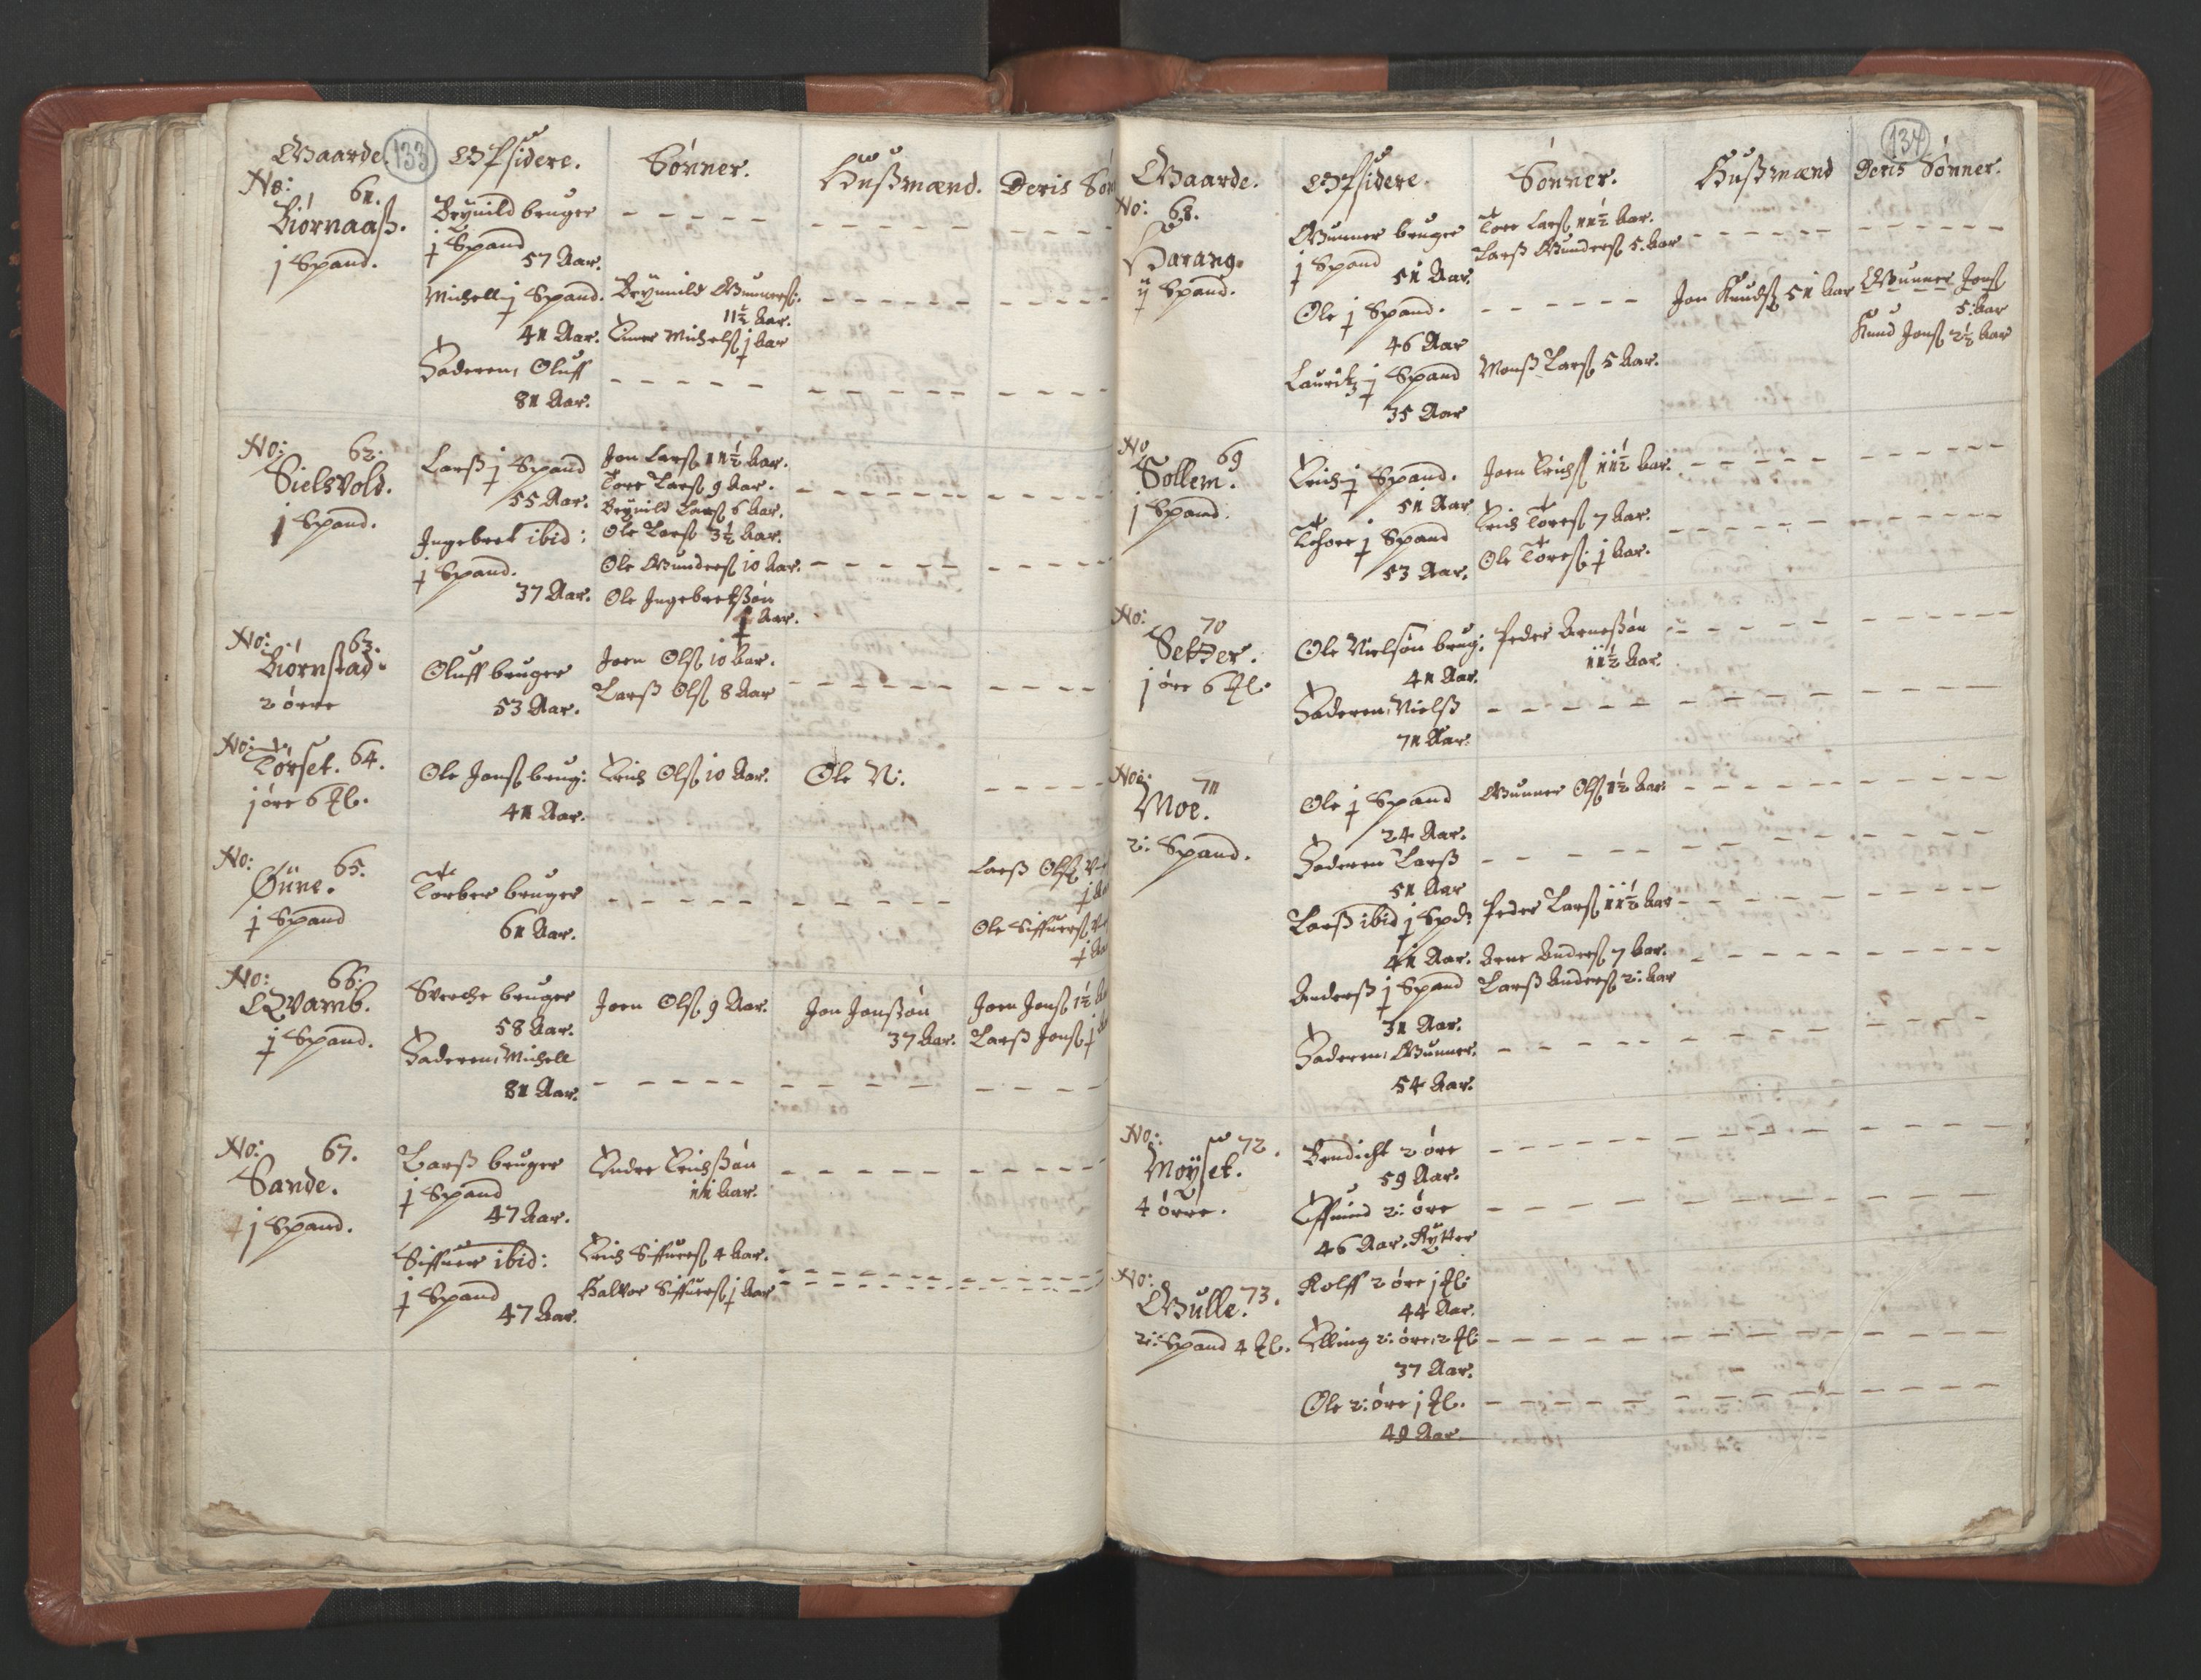 133
Gaarde. Opsidere. Sønner. Hußmænd. Deris Søn
No: 61.
Biørnaaß.
j Spand.
Brynild bruger
½ Spand
57 Aar.
Michell ½ Spand.
41 Aar.
Faderen, Oluff
81 Aar.
Brynnild Gunnerß:
11½ Aar.
Einer Michelß ½ Aar
No: 62.
Sielsvold.
j Spand.
Larß ½ Spand
55 Aar.
Ingebret ibid:
½ Spand.
37 Aar.
Jon Larß 11½ Aar.
Tore Larß 9 Aar.
Brynild Larß 6 Aar.
Ole Larß 3½ Aar.
Ole Gunderß 10 Aar.
Ole Ingebretßøn
½ Aar.
No: 63.
Biørnstad
2 ørre
Oluff bruger
53 Aar.
Joen Olß 10 Aar.
Larß Olß 8 Aar
No: 64.
Tørset.
j øre 6
Ole Jonß brug:
41 Aar.
Erich Olß 10 Aar.
Ole N:
No: 65.
Øüne.
½ Spand
Torber bruger
61 Aar.
Larß Olß
Ole Siffuerß
No: 66:
Qvamb.
½ Spand.
Sverche bruger
58 Aar.
Faderen, Michell
81 Aar.
Joen Olß 9 Aar.
Jon Jonßøn
37 Aar.
Joen Jonß 1½
Larß Jonß
No: 67.
Sande.
j Spand.
Larß bruger
½ Spand
47 Aar.
Siffuer ibid:
½ Spand
47 Aar.
Endre Erichßøn
11 Aar.
Erich Siffuerß 4 Aar.
Halvor Siffuerß ½ Aar
134
Gaarde. Opsidere. Sønner. Hußmænd Deris Sønner.
No: 68.
Harang.
Spand.
Gunner bruger
½ Spand
51 Aar
Ole ½ Spand.
46 Aar
Lauritz ½ Spand
35 Aar
Tore Larß 11½ Aar.
Larß Gunderß 5. Aar
Monß Larß 5 Aar.
Jon Knudß 51 Aar
Gunner Jonß
5 Aar
Knud Jonß 2½ Aar
No 69
Sollem.
j Spand.
Erich ½ Spand.
51 Aar
Thore ½ Spand
53 Aar.
Joen Erichß 11½ Aar.
Erich Toreß 7 Aar.
Ole Toreß: ½ Aar.
No: 70
Setter.
j øre 6
Ole Nielsøn brug:
41 Aar.
Faderen, Nielß
71 Aar.
Peder Arneßøn
11½ Aar.
No: 71
Moe.
2: Spand.
Ole ½ Spand
24 Aar.
Faderen Larß
51 Aar
Larß ibid ½ Spd:
41 Aar.
Anderß ½ Spand
31 Aar.
Faderen, Gunner.
54 Aar.
Gunner Olß 1½ Aar
Peder Larß 11½ Aar
Arne Anderß 7 Aar.
Larß Anderß 2: Aar
No: 72.
Moÿset.
4 ørre.
Bendicht 2 øre
59 Aar.
Effuind 2: øre
46 Aar. Rytter
No: 73.
Gulle.
2: Spand 4
Rolff 2 øre j
44 Aar.
Elling 2: øre, 2
37 Aar.
Ole 2: øre j
49 Aar.